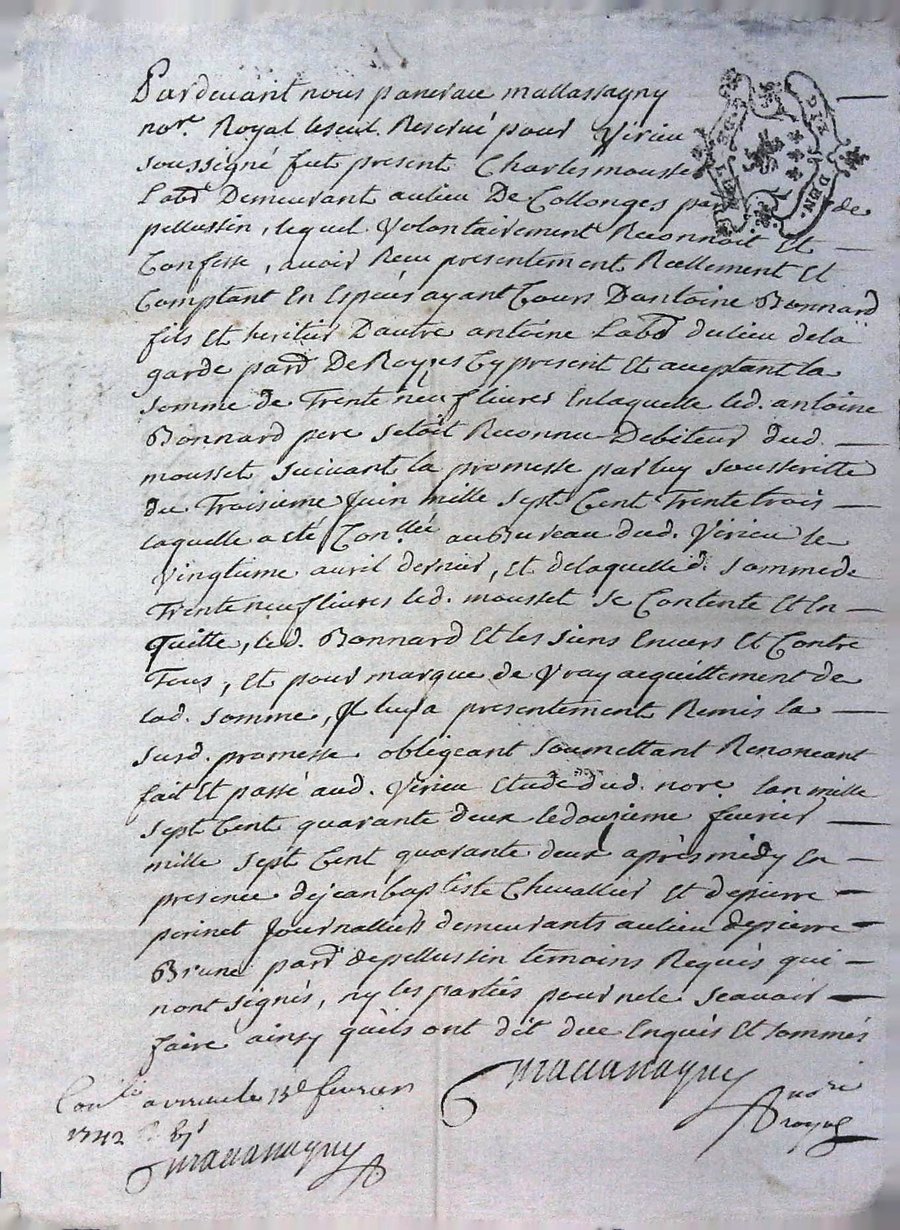 Pardevant nous pancrace mallassagny
nore. Royal seul Reservé pour Virieu
soussigné fut present Charles mousset
Labr Demeurant au lieu De Collonges par de
pellussin, lequel Volontairement Reconnoit Et
Confesse, avoir Receu presentement Reellement Et
Comptant En Especes ayant Cours Dantoine Bonnard
fils Et heritier Dautre antoine Labr du lieu de la
garde parse De Royes Cy present Et aceptant la
somme de Trente neuf livres En laquelle led. antoine
Bonnard pere setoit Reconnu Debiteur dud.
mousset suivant la promesse par luy soussritte
du Troisieme Juin mille sept Cent Trente trois
laquelle a eté Conllée au Bureau dud. Virieu le
vingtieme avril dernier, Et de laquelle d. somme de
Trente neuf livres led. mousset se Contente Et En
quitte, led. Bonnard Et les siens Envers Et Contre
Tous, Et pour marque de Vray acquittement de
lad. somme, Il luy a presentement Remis la
susd. promesse obligeant soumettant Renonceant
fait Et passé aud. Virieu Etude dud. nore. lan mille
sept Cent quarante deux le douzieme fevrier
mille sept Cent quarante deux après midy En
presence de jean baptiste Chevallier Et de pierre
perinet Journallier demeurants au lieu de pierre
Brune parse de pellussin temoins Requis qui
nont signés, ny les parties pour ne le scavoir
faire ainsy quils ont dit de ce Enquis Et sommés
mallassagny
nore
royal
Conllé a virieu le 15e fevrier
1742 R.
mallassagny
GE. DEN.